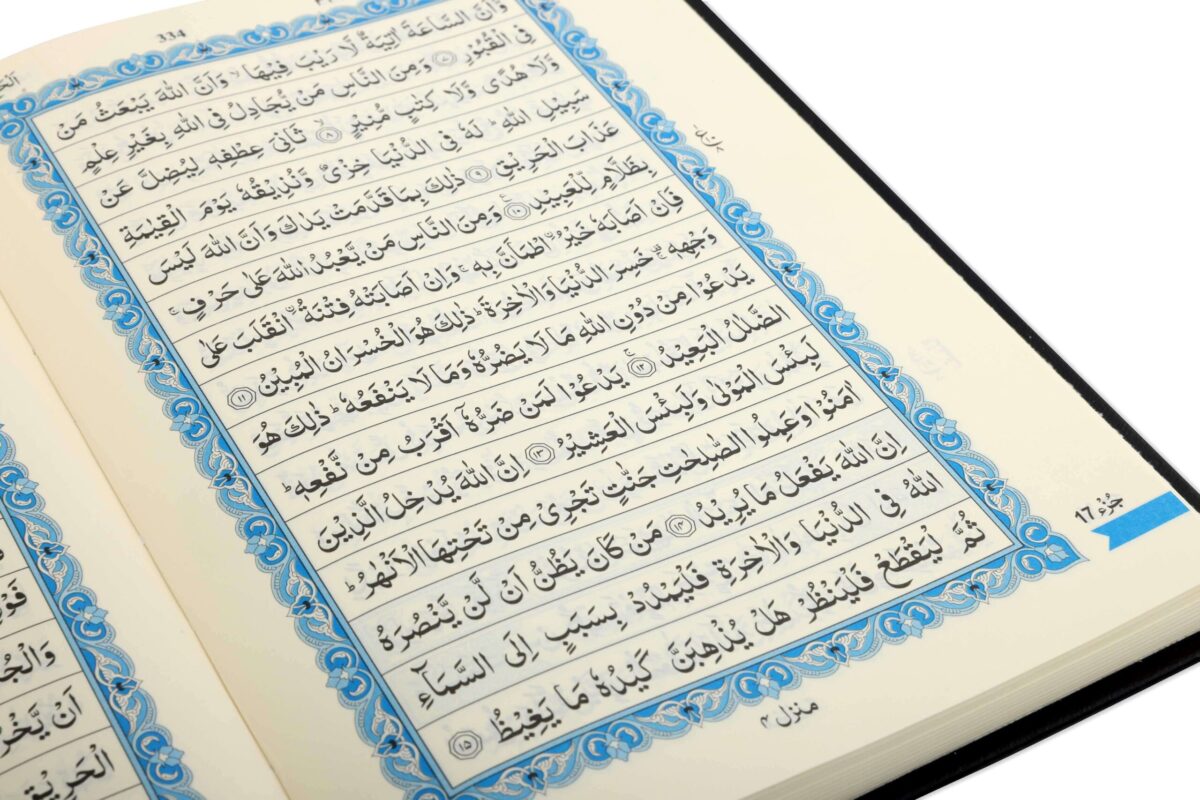 334
وَّاَنَّ السَّاعَةَ اٰتِيَةٌ لَّا رَيْبَ فِيْهَا ۙ وَاَنَّ اللّٰهَ يَبْعَثُ مَنْ
فِي الْقُبُوْرِ ۷ وَمِنَ النَّاسِ مَنْ يُّجَادِلُ فِي اللّٰهِ بِغَيْرِ عِلْمٍ
وَّلَا هُدًى وَّلَا كِتٰبٍ مُّنِيْرٍ ۙ ۸ ثَانِيَ عِطْفِهٖ لِيُضِلَّ عَنْ
سَبِيْلِ اللّٰهِ ؕ لَهٗ فِي الدُّنْيَا خِزْيٌ وَّنُذِيْقُهٗ يَوْمَ الْقِيٰمَةِ
عَذَابَ الْحَرِيْقِ ۹ ذٰلِكَ بِمَا قَدَّمَتْ يَدٰكَ وَاَنَّ اللّٰهَ لَيْسَ
بِظَلَّامٍ لِّلْعَبِيْدِ ۱۰ وَمِنَ النَّاسِ مَنْ يَّعْبُدُ اللّٰهَ عَلٰى حَرْفٍ ۚ
فَاِنْ اَصَابَهٗ خَيْرُ ۨ اطْمَاَنَّ بِهٖ ۚ وَاِنْ اَصَابَتْهُ فِتْنَةُ ۨ انْقَلَبَ عَلٰى
وَجْهِهٖ ۚ خَسِرَ الدُّنْيَا وَالْاٰخِرَةَ ؕ ذٰلِكَ هُوَ الْخُسْرَانُ الْمُبِيْنُ ۱۱
يَدْعُوْا مِنْ دُوْنِ اللّٰهِ مَا لَا يَضُرُّهٗ وَمَا لَا يَنْفَعُهٗ ؕ ذٰلِكَ هُوَ
الضَّلٰلُ الْبَعِيْدُ ۚ ۱۲ يَدْعُوْا لَمَنْ ضَرُّهٗۤ اَقْرَبُ مِنْ نَّفْعِهٖ ؕ
لَبِئْسَ الْمَوْلٰى وَلَبِئْسَ الْعَشِيْرُ ۱۳ اِنَّ اللّٰهَ يُدْخِلُ الَّذِيْنَ
اٰمَنُوْا وَعَمِلُوا الصّٰلِحٰتِ جَنّٰتٍ تَجْرِيْ مِنْ تَحْتِهَا الْاَنْهٰرُ ؕ
اِنَّ اللّٰهَ يَفْعَلُ مَا يُرِيْدُ ۱۴ مَنْ كَانَ يَظُنُّ اَنْ لَّنْ يَّنْصُرَهُ
اللّٰهُ فِي الدُّنْيَا وَالْاٰخِرَةِ فَلْيَمْدُدْ بِسَبَبٍ اِلَى السَّمَآءِ
ثُمَّ لْيَقْطَعْ فَلْيَنْظُرْ هَلْ يُذْهِبَنَّ كَيْدُهٗ مَا يَغِيْظُ ۱۵
منزل ۴
جُزْء 17
اَنْ يَّخْرُ
الْحَرِيْقِ